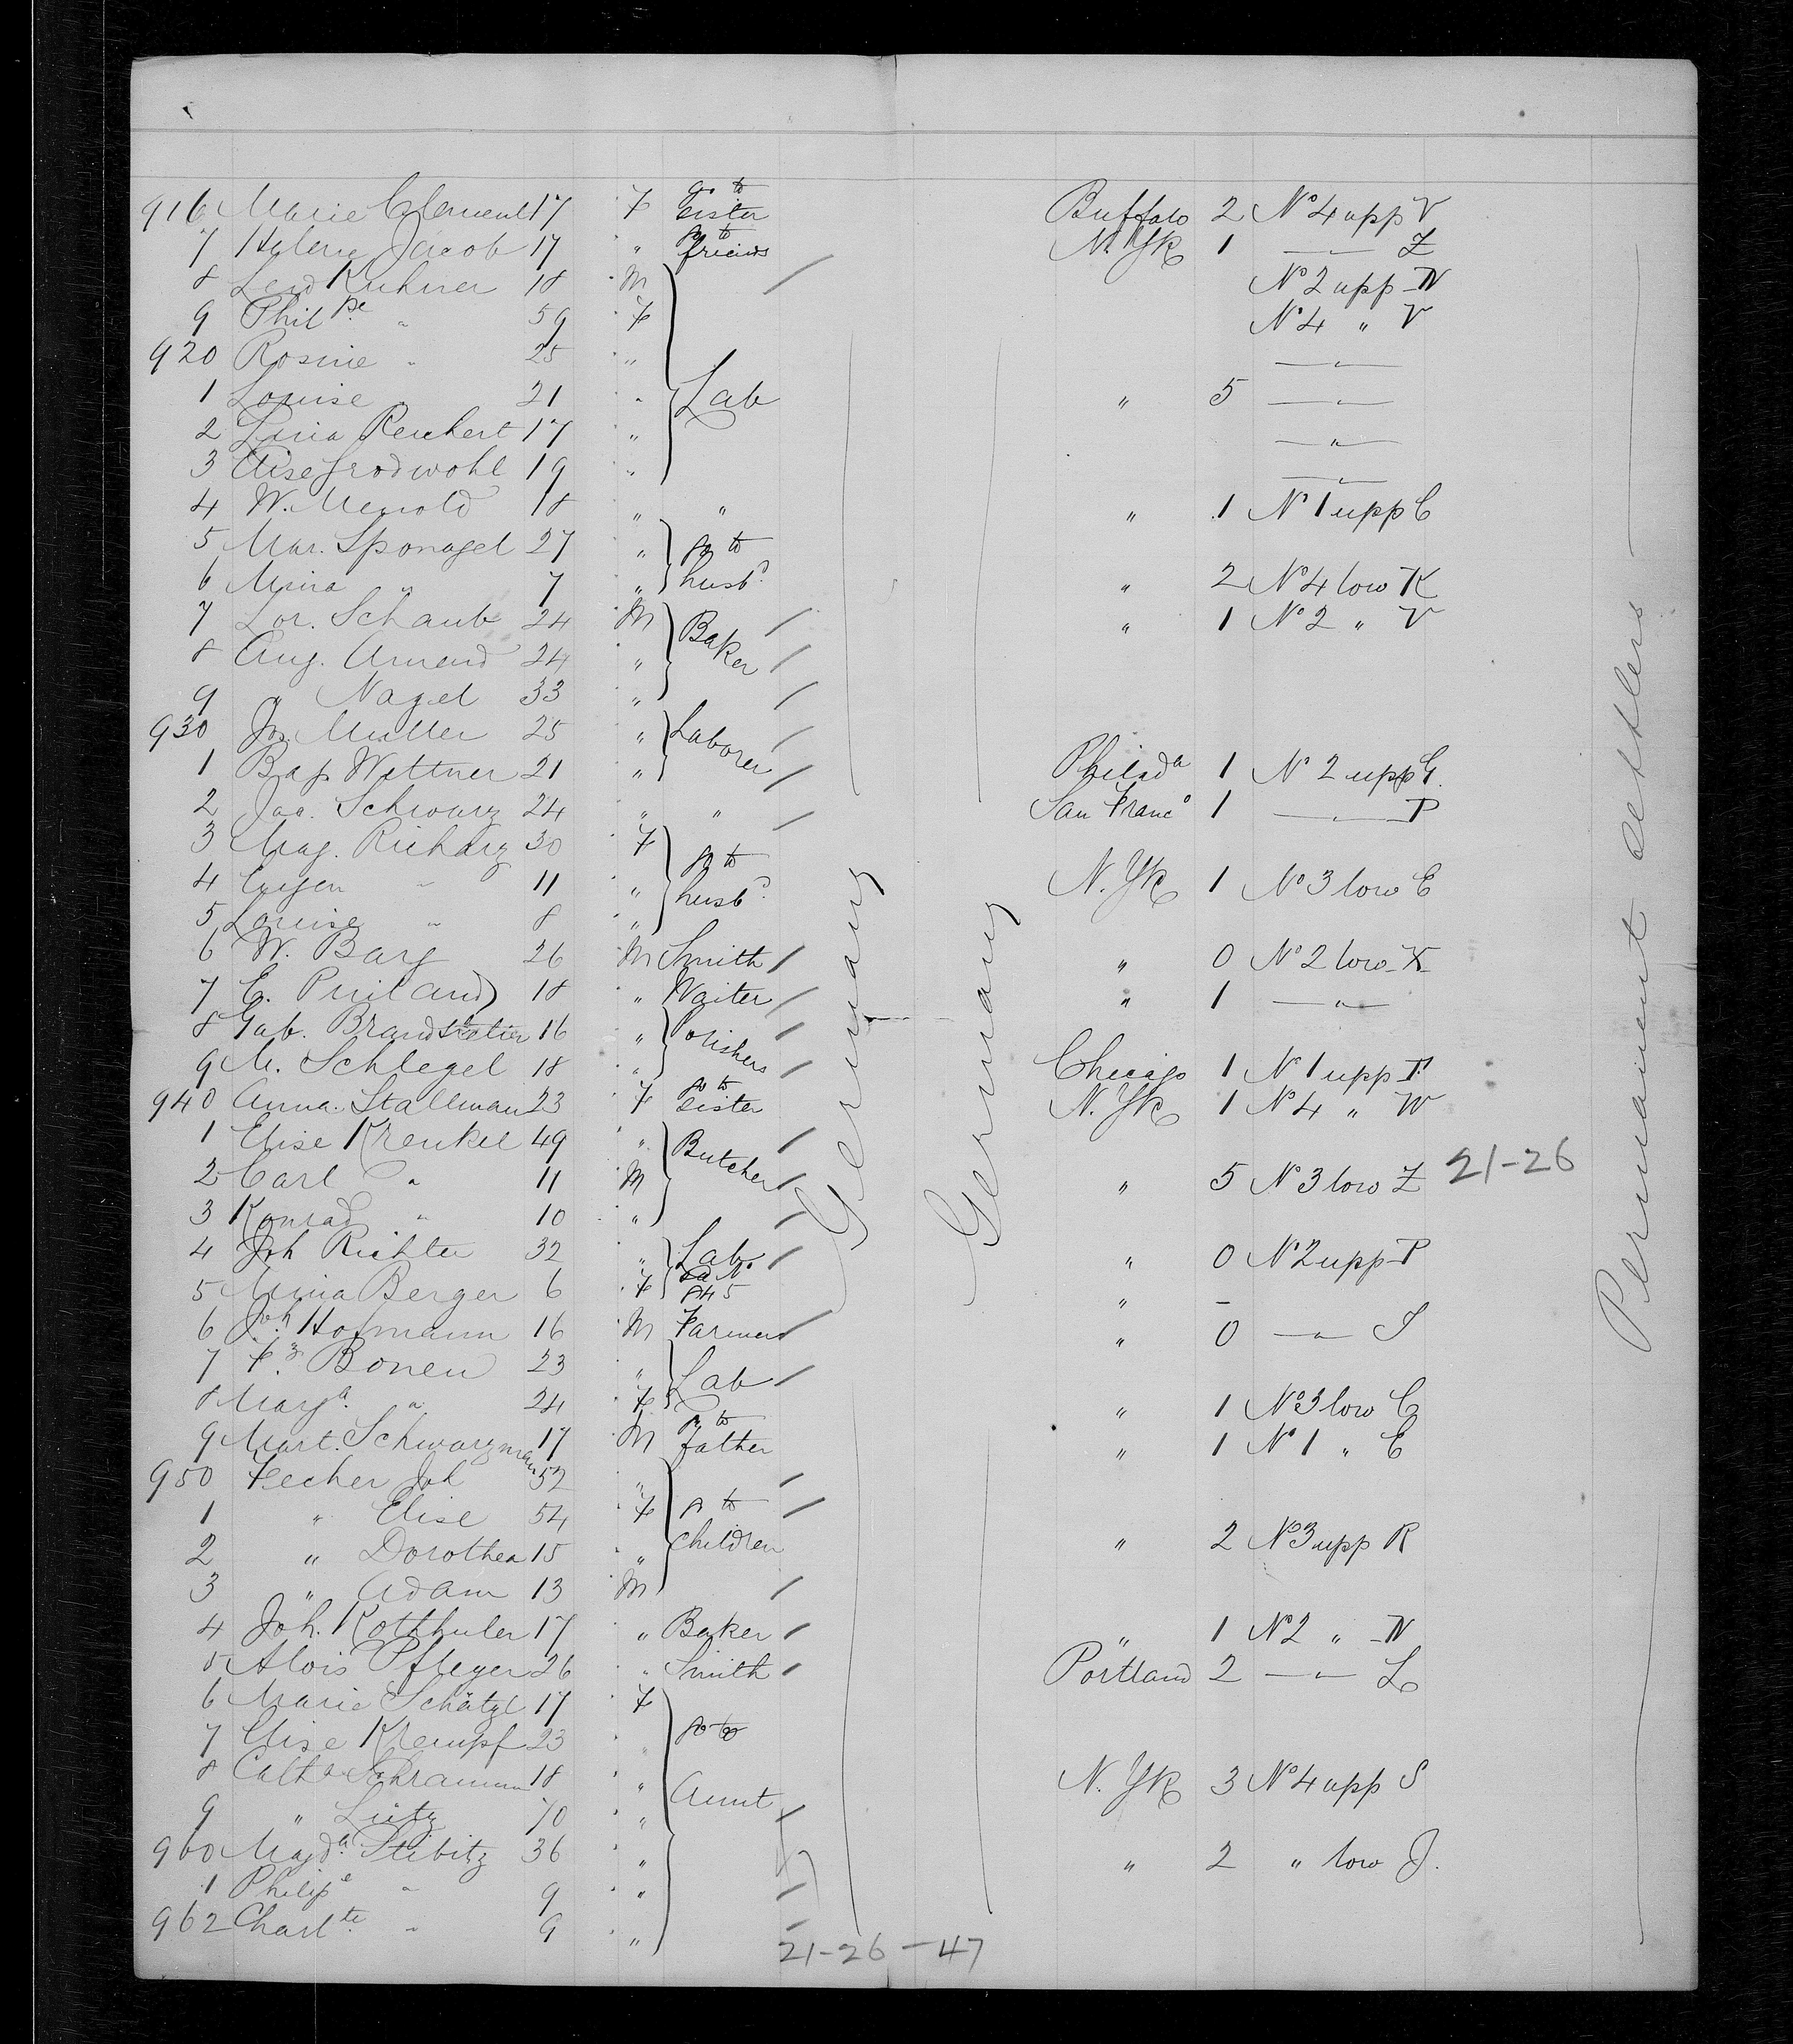 916 Marie Clement 17 F go to sister Buffalo 2 No 4 upp V
7 Helene Jacob 17 " go to friends N. Yk 1 — " — Z
8 Leod Kuhner 18 M No 2 upp N
9 Phil pe " 59 F No 4 " V
920 Rosine " 25 " — " —
1 Louise " 21 " Lab " 5 — " —
2 Lina Reichert 17 " — " —
3 Elise Grodwohl 19 " — " —
4 W. 18 " " " 1 No 1 upp C
5 Mar. Sponagel 27 " go to
6 Mina " 7 " husbd " 2 No 4 low K
7 Lor. Schaub 24 M Baker " 1 No 2 " V
8 Aug. Amend 24 "
9 " Nagel 33 "
930 Jos. Muller 25 " Laborer
1 Bap Wittner 21 " Philada 1 No 2 upp G.
2 Jac. Schwarz 24 " " San Franco 1 — " — P
3 Mag. Richarz 30 F go to
4 Eugen " 11 " husbd N. Yk 1 No 3 low E
5 Louise " 8 "
6 W. Barg 26 M Smith " 0 No 2 low X
7 E. 18 " Waiter " 1 — " —
8 Gab. Brandstetter 16 " Polishers
9 M. Schlegel 18 " Chicago 1 No 1 upp P
940 Anna Stallman 23 F go to sister N. Yk 1 No 4 " W
1 Elise Krenkel 49 " Butcher
2 Carl " 11 M " 5 No 3 low Z 21-26
3 Konrad " 10 "
4 Joh Richter 32 " Lab " 0 No 2 upp P
5 Mina Berger 6 F to No 845 " –
6 Joh. Hofmann 16 M Farmer " 0 — " — S
7 Fz. Bonen 23 " Lab
8 Marga. " 24 F " 1 No 3 low C
9 Mart. Schwarzman 17 M go to father " 1 No 1 " E
950 Fecher Joh 52 "
1 " Elise 54 F go to
2 " Dorothea 15 " children " 2 No 3 upp R
3 " Adam 13 M
4 Joh. Rothhuler 17 " Baker " 1 No 2 " N
5 Alois Pfleger 26 " Smith Portland 2 — " — L
6 Marie Schätzl 17 F
7 Elise Krempf 23 " go to
8 Catha Schramm 18 " Aunt N. Yk 3 No 4 upp S
9 " Lutz 70 "
960 Magda. Stibitz 36 " " 2 " low J.
1 Philipe " 9 "
962 Charlte. " 9 "
21-26-47
Germany
Germany
Permanent settlers